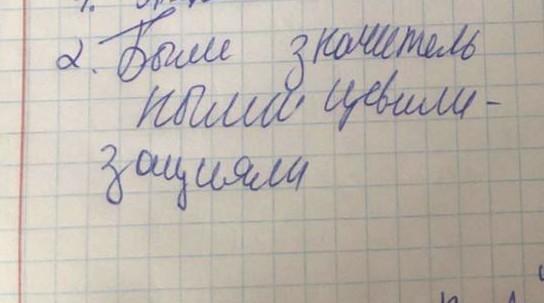 2. Были значитель
ными цевили-
зациями